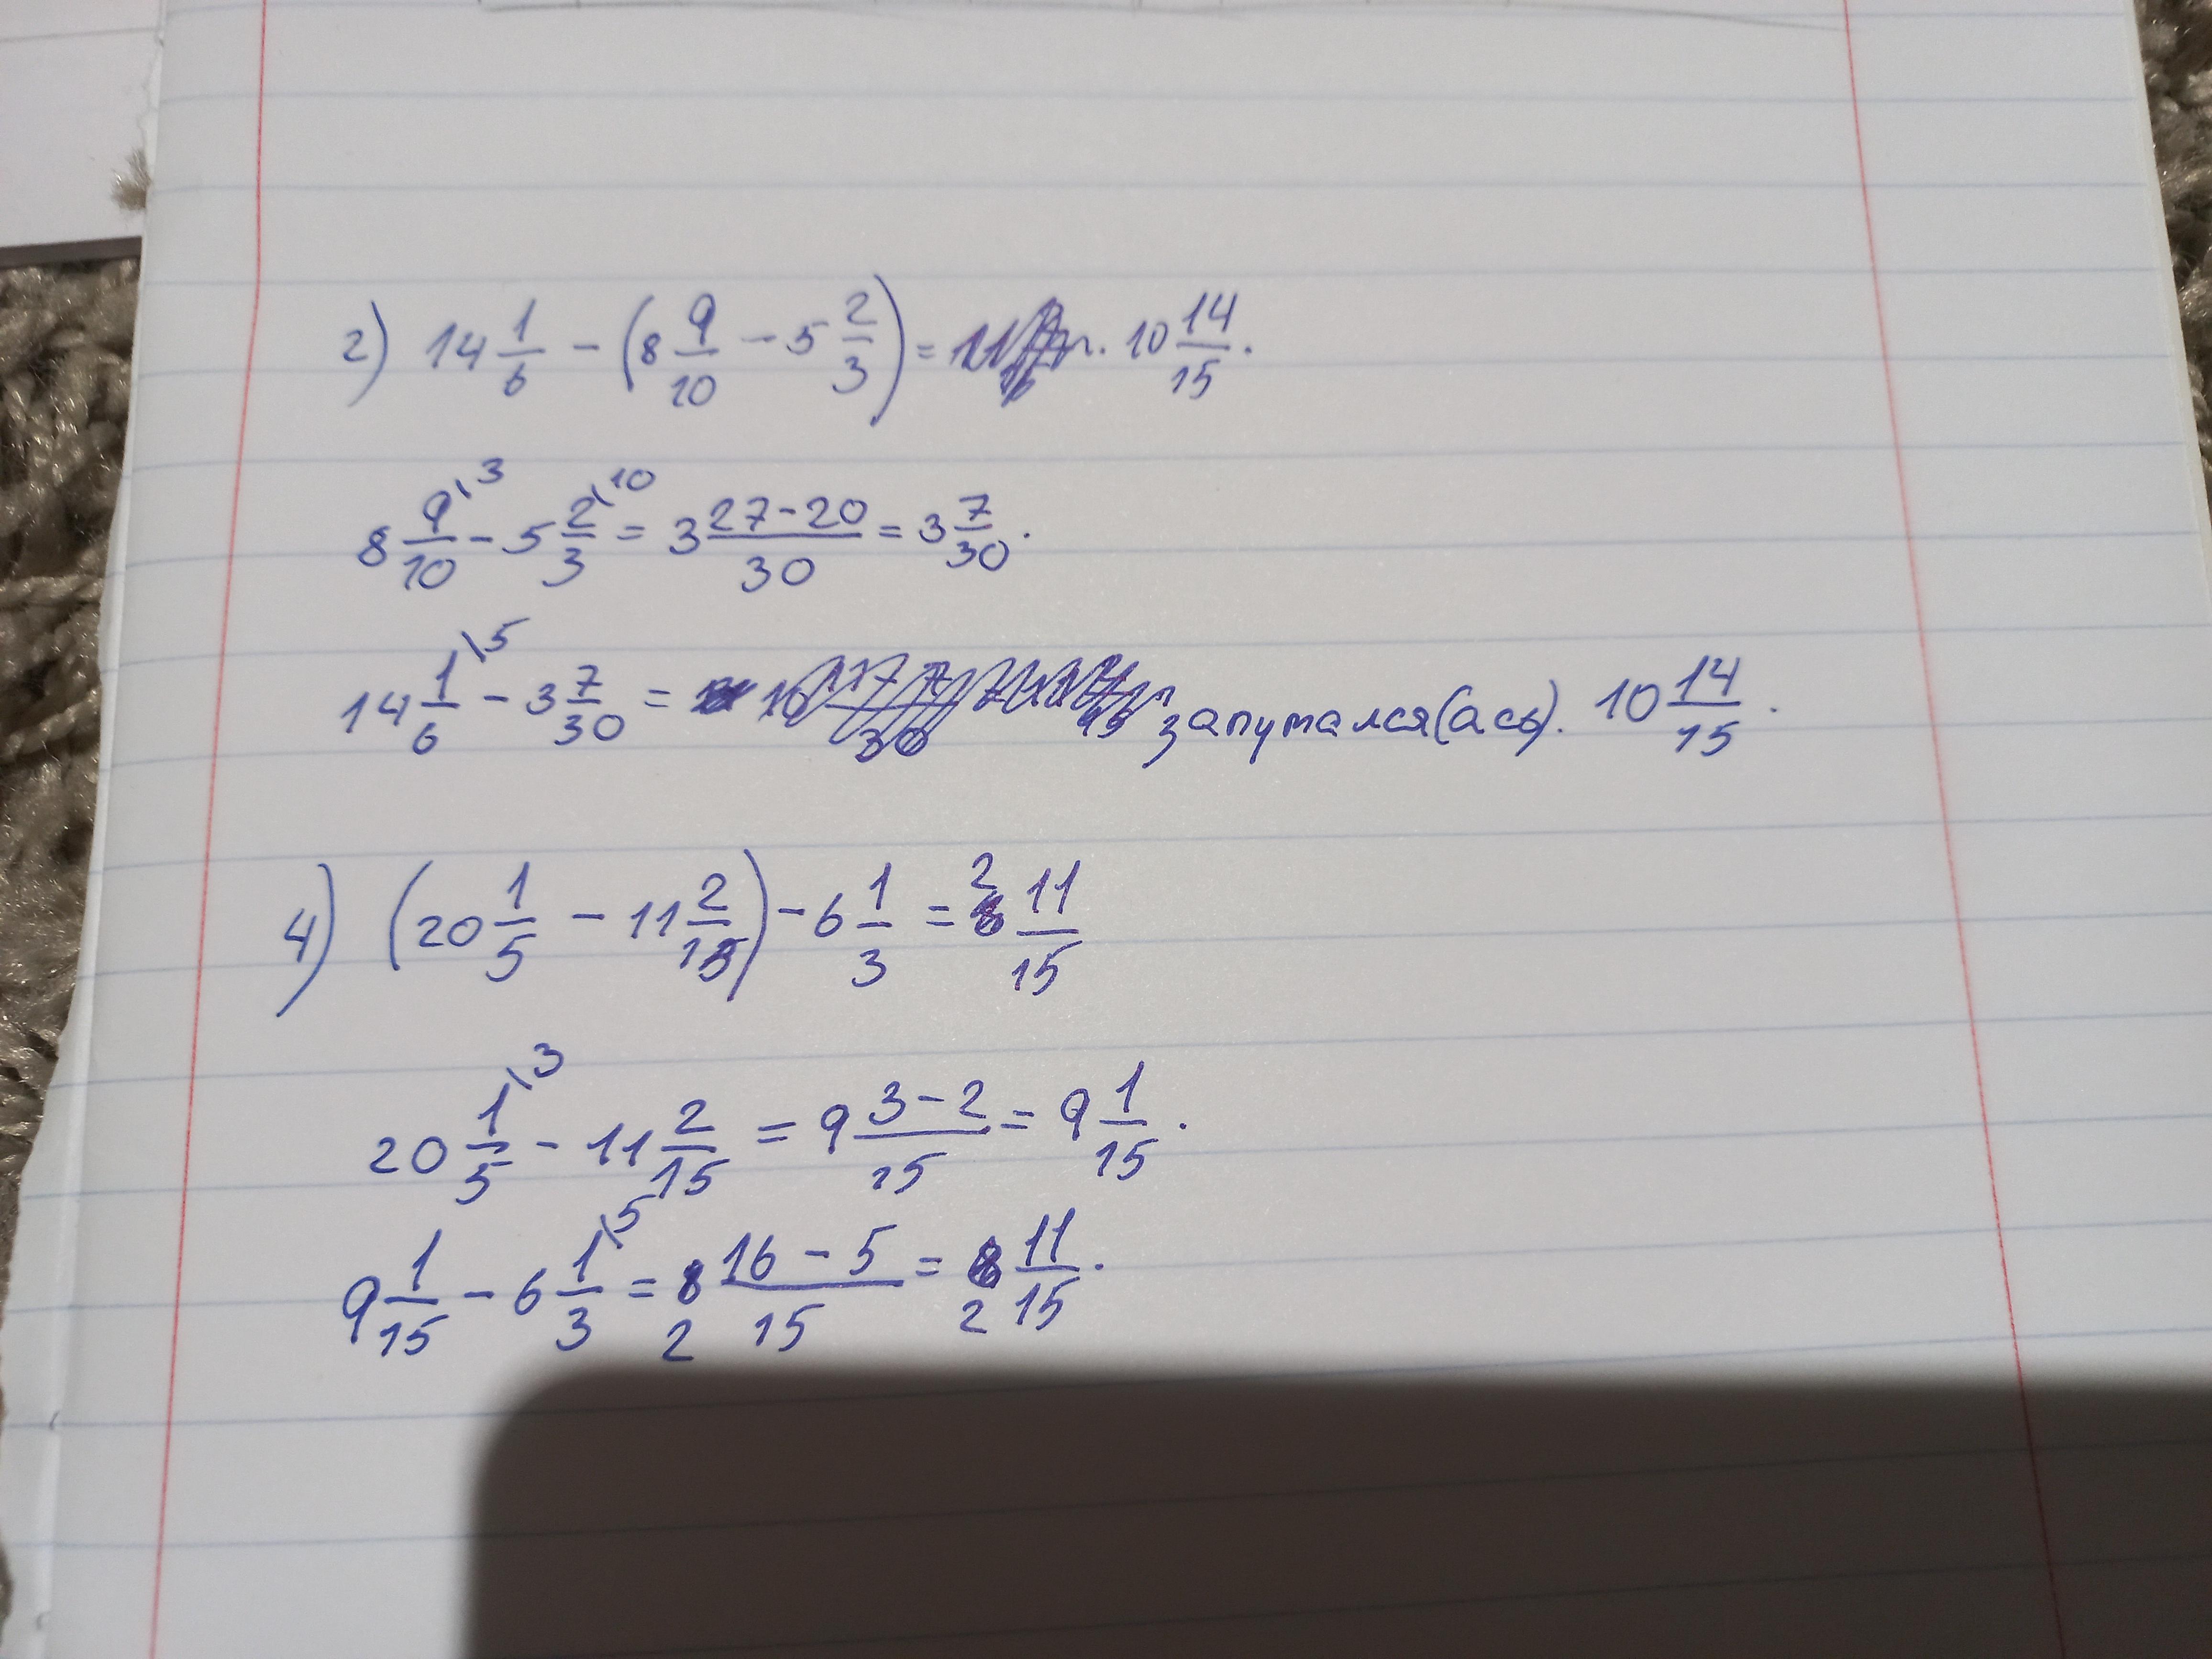 2) 14 1/6 - (8 9/10 - 5 2/3) = 10 14/15.
8 9/10 \3 - 5 2/3 \10 = 3 27-20/30 = 3 7/30.
14 1/6 \5 - 3 7/30 = запутался(ась). 10 14/15.
4) (20 1/5 - 11 2/15) - 6 1/3 = 2 11/15
20 1/5 \3 - 11 2/15 = 9 3-2/15 = 9 1/15.
9 1/15 - 6 1/3 \5 = 2 16-5/15 = 2 11/15.